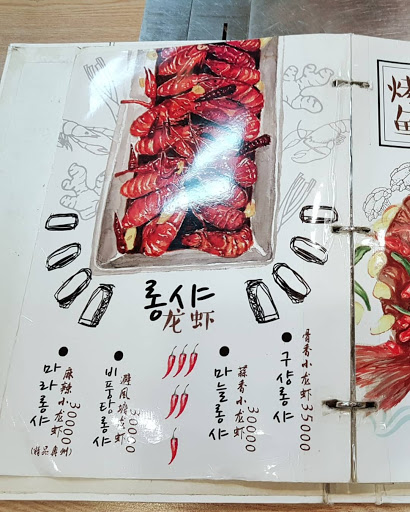 롱샤
龙虾
마라롱샤
麻辣小龙虾
30000
(精品真州)
비풍탕롱샤
避風塘龙虾
30000
마늘롱샤
蒜香小龙虾
30000
구샹롱샤
骨香小龙虾
35000
烤鱼